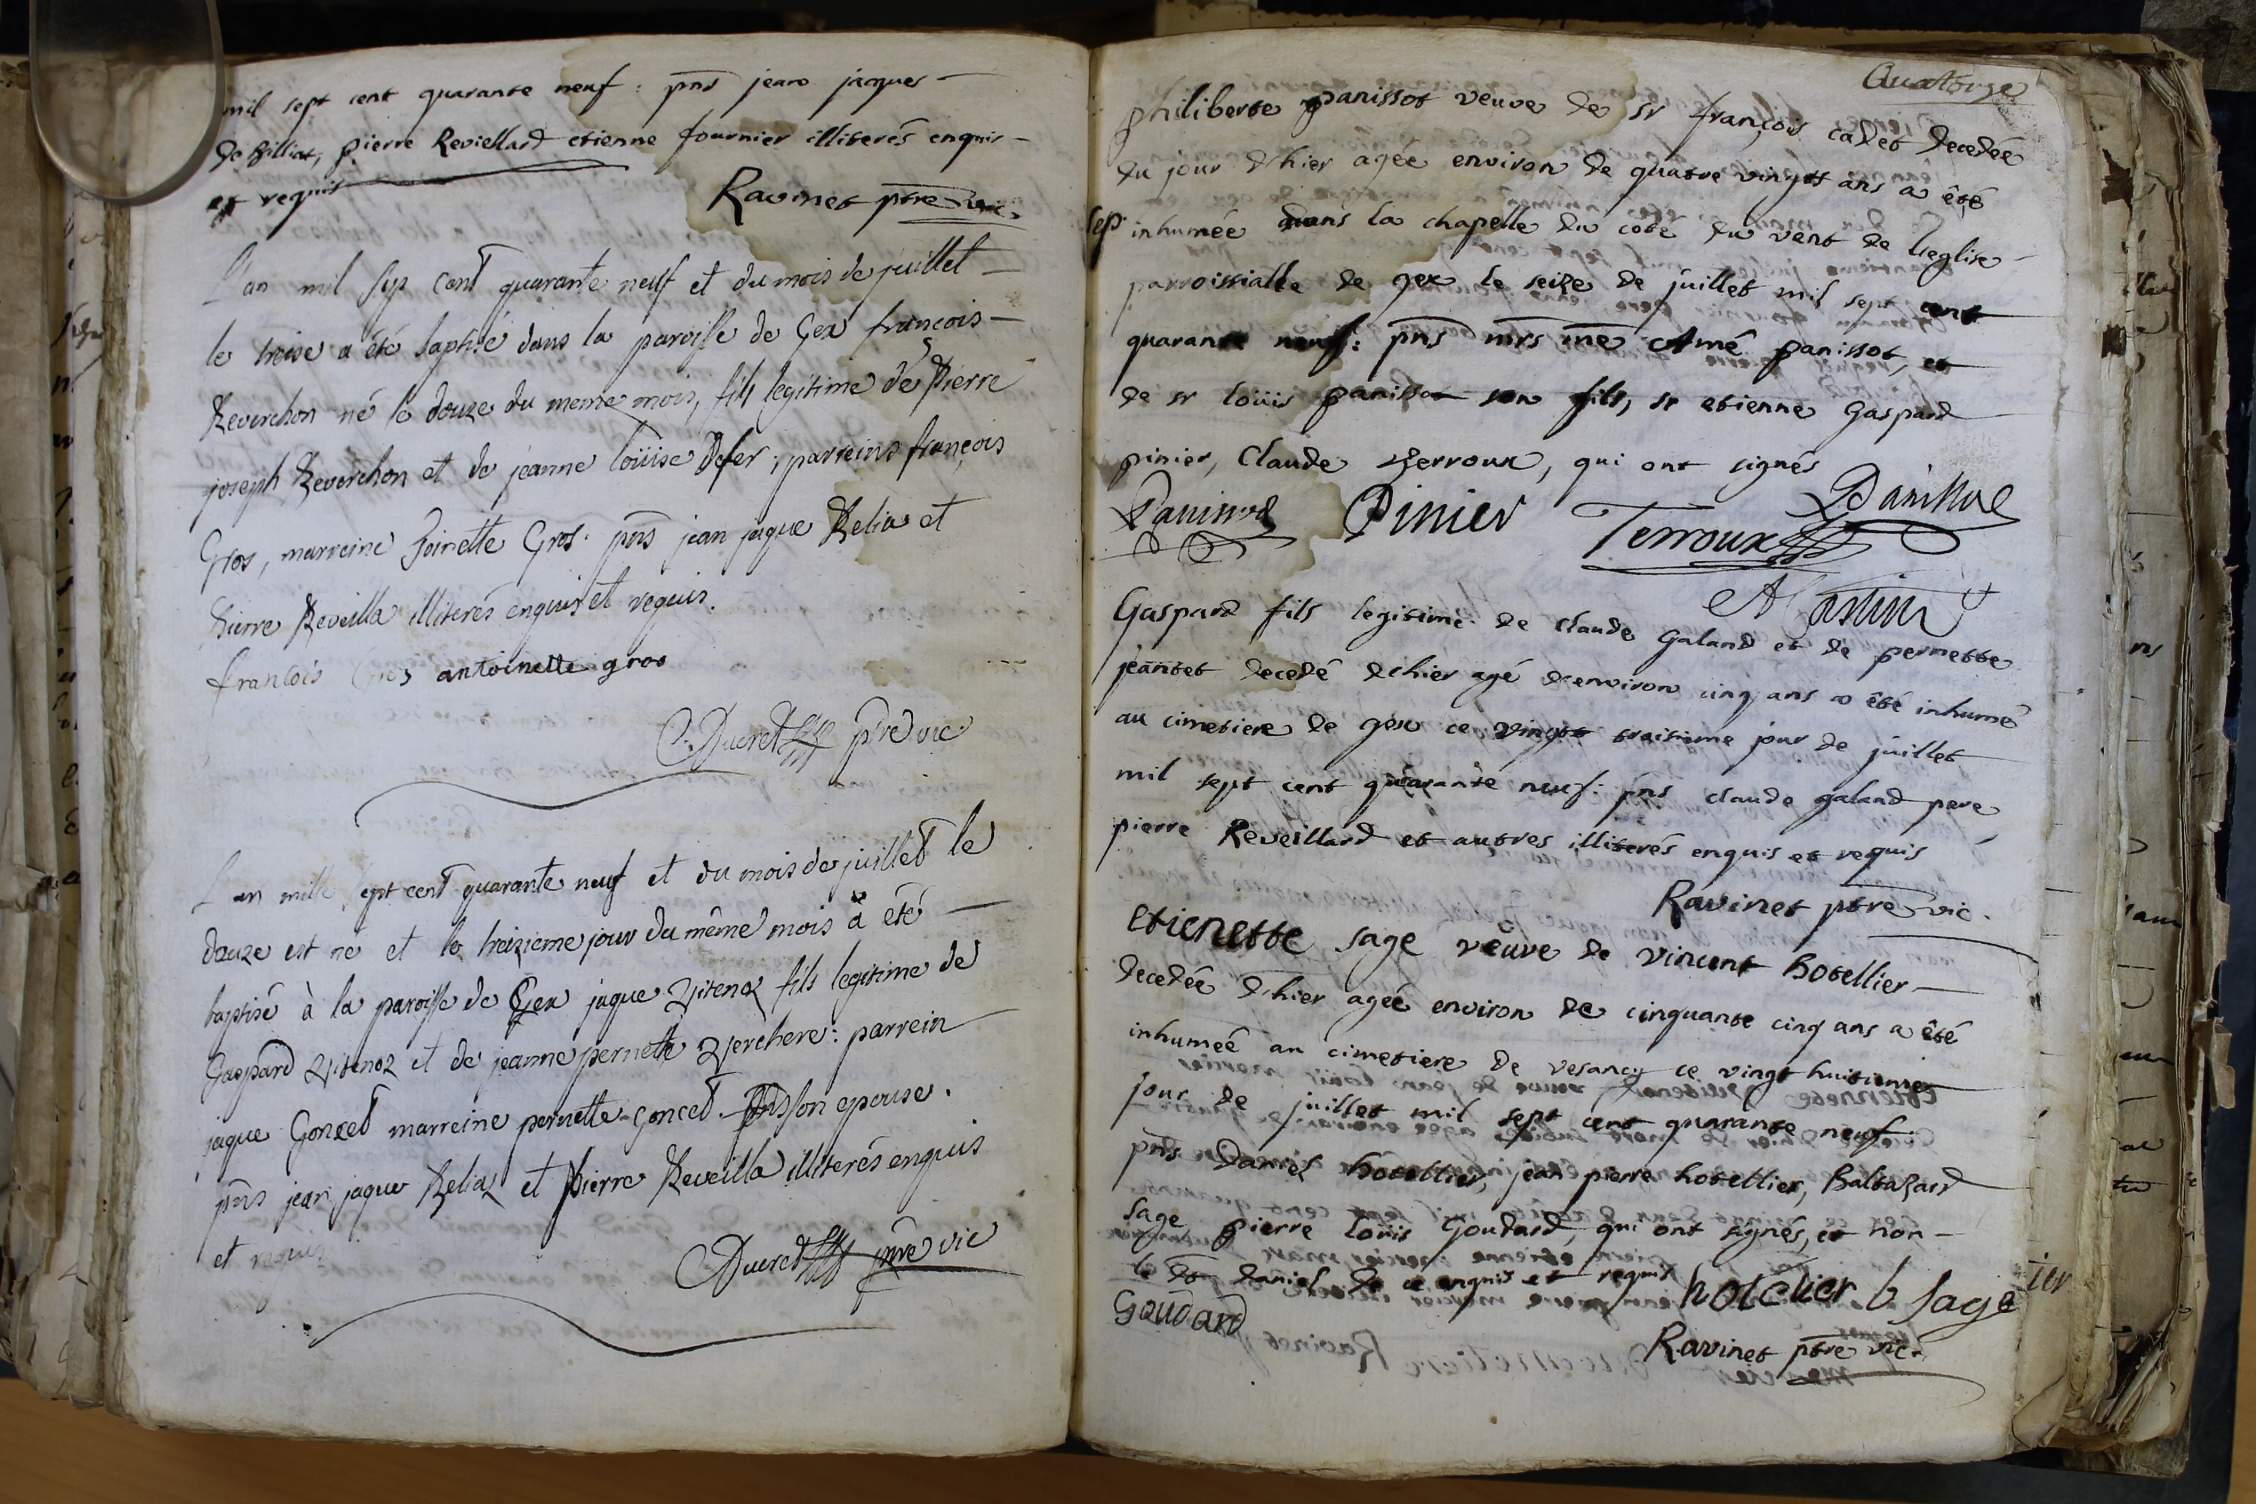 mil sept cent quarante neuf : pns jean jacques
de billiat, pierre Reviellard etienne fournier illiterés enquis
et requis
Ravinet ptre vic.
L'an mil sept cent quarante neuf et du mois de juillet
le treise a été baptisé dans la paroisse de Gex françois
Reverchon né le douze du meme mois, fils legitime de Pierre
joseph Reverchon et de jeanne Loüise Defer ; parreins françois
Gros, marreine Toinette Gros. pns jean jaque Relia et
Pierre Reveilla illiterés enquis et requis.
francois Gros antoinette gros
Ducret ptre vic.
L'an mille sept cent quarante neuf et du mois de juillet le
douze est né et le treizieme jour du même mois à eté
baptisé à la paroisse de Gex jaque fils legitime de
Gaspard et de jeanne pernette : parrein
jaque Goncet marreine pernette Goncet son epouse.
pns jean jaque Relia et Pierre Reveilla illiterés enquis
et requis
Ducret ptre vic
Quatorze
philiberte panissot veuve de sr françois cadet decedée
du jour d'hier agée environ de quatre vingts ans a êté
sep. inhumée dans la chapelle du coté du vent de l'eglise
parroissialle de gex le seize de juillet mil sept cent
quarante neuf : pns mrs me Amé panissot, et
de sr loüis panissot son fils, sr etienne Gaspard
pinier, Claude terroux, qui ont signés
Panissod Pinier Terroux Panissod
A Castin
Gaspard fils legitime de claude Galand et de pernette
jeantet decedé d'hier agé d'environ cinq ans a êté inhumé
au cimetiere de gex ce vingt troisieme jour de juillet
mil sept cent quarante neuf : pns claude galand pere,
pierre Reveillard et autres illiterés enquis et requis
Ravinet ptre vic.
etienette sage veuve de vincent hotellier
decedée d'hier agée environ de cinquante cinq ans a êté
inhumée au cimetiere de vesancy ce vingt huitieme
jour de juillet mil sept cent quarante neuf
pns Daniel hotellier, jean pierre hotellier, Baltazard
sage, pierre loüis Goudard, qui ont signés, et non
le dt daniel de ce enquis et requis hotelier b sage
Goudard
Ravinet ptre vic.